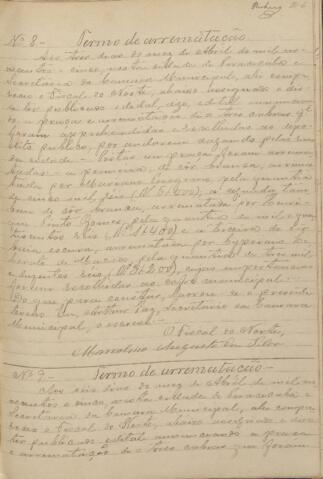 Nº 8 - Termo de arrematação
Aos tres dias do mez de Abril de mil no-
vecentos e cinco, nesta cidade de
Secretaria da Camara Municipal, ahi compa-
receu o Fiscal do Norte, abaixo assignado e dis-
se ter publicado edital,
a praça e arrematação de tres cabras q.
foram apprehendidas e recolhidas ao depo-
sito publico, por andarem vagando pelas ruas
da cidade. Postas em praça foram arrema-
tadas: a primeira, de côr branca, arrema-
tada por Marianna pela quantia
de cinco mil reis (Rs. 5\000), a segunda tam-
bem de côr branca, arrematada por
Gomes, pela quantia de mil e qua-
trocentos reis (Rs. 1\400) e a terceira de
escura, arrematada por
de pela quantia de tres mil
e duzentos reis (Rs. 3\200), cujas importancias
foram recolhidas ao cofre municipal.
Do que para constar, lavrou-se o presente
termo. Eu, Paz, Secretario da Camara
Municipal, o escrevi.
O Fiscal do Norte,
Marcolino Augusto da Silva
Nº 9 - Termo de arrematação -
Aos seis dias do mez de Abril de mil no-
vecentos e cinco, nesta cidade de
Secretaria da Camara Municipal, ahi compa-
receu o Fiscal do Norte, abaixo assignado e disse
ter publicado edital annunciando a praça
e arrematação de tres cabras que foram